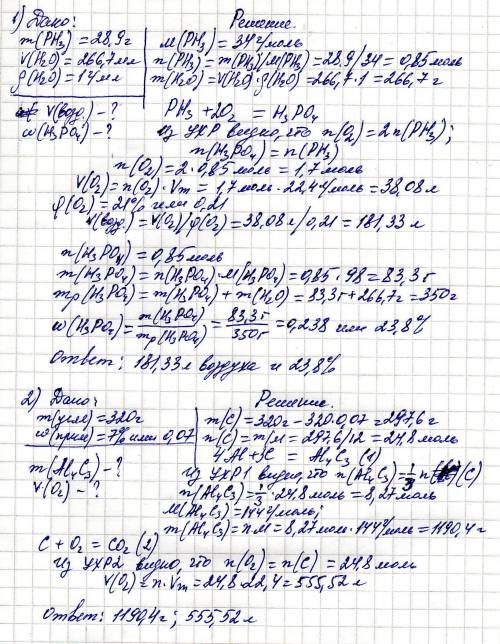 1) Дано:
m(PH₃)=28,9г
V(H₂O)=266,7мл
ρ(H₂O)=1г/мл
V(возд.)-?
ω(H₃PO₄)-?
Решение.
M(PH₃)=34г/моль
n(PH₃)=m(PH₃)/M(PH₃)=28,9/34=0,85моль
m(H₂O)=V(H₂O)·ρ(H₂O)=266,7·1=266,7г
PH₃+2O₂=H₃PO₄
из УХР видно, что n(O₂)=2n(PH₃);
n(H₃PO₄)=n(PH₃)
n(O₂)=2·0,85моль=1,7моль
V(O₂)=n(O₂)·Vm=1,7моль·22,4л/моль=38,08л
φ(O₂)=21% или 0,21
V(возд.)=V(O₂)/φ(O₂)=38,08л/0,21=181,33л
n(H₃PO₄)=0,85моль
m(H₃PO₄)=n(H₃PO₄)·M(H₃PO₄)=0,85·98=83,3г
mр(H₃PO₄)=m(H₃PO₄)+m(H₂O)=83,3г+266,7г=350г
ω(H₃PO₄)=m(H₃PO₄)/mр(H₃PO₄)=83,3г/350г=0,238 или 23,8%
Ответ: 181,33л воздуха и 23,8%
2) Дано:
m(угля)=320г
ω(прим)=7% или 0,07
m(Al₄C₃)-?
V(O₂)-?
Решение.
m(C)=320г-320·0,07=297,6г
n(C)=m/M=297,6/12=24,8моль
4Al+3C=Al₄C₃ (1)
Из УХР1 видно, что n(Al₄C₃)=1/3 n(C)
n(Al₄C₃)=1/3·24,8моль=8,27моль
M(Al₄C₃)=144г/моль;
m(Al₄C₃)=nM=8,27моль·144г/моль=1190,4г
C+O₂=CO₂ (2)
Из УХР2 видно, что n(O₂)=n(C)=24,8моль
V(O₂)=n·Vm=24,8·22,4=555,52л
Ответ: 1190,4г; 555,52л